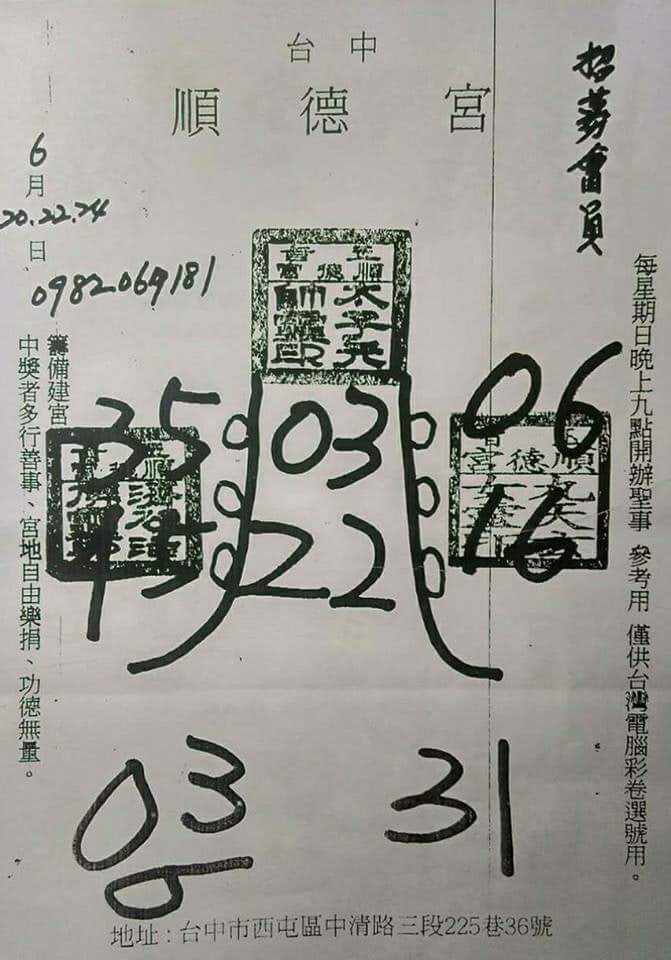 台中
順德宮
招募會員
每星期日晚上九點開辦聖事 參考用 僅供台灣電腦彩卷選號用。
6月
20.22.24
日
0982069181
籌備建宮
中獎者多行善事、宮地自由樂捐、功德無量。
順德宮
太子元
帥靈印
35
03
06
順德宮
九天玄
女靈印
15
22
16
03
31
地址:台中市西屯區中清路三段225巷36號